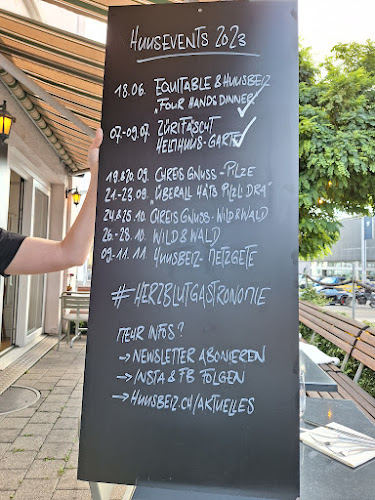 HUUSEVENTS 2023
18.06. EQUITABLE & HUUSBEIZ
"FOUR HANDS DINNER"
07.-09.07. ZÜRIFÄSCHT
HELTIHUUS-GARTE
19&20.09. CHREIS GNUSS - PILZE
21.-23.09. "ÜBERALL HÄTS PILZ DRA"
24&25.10. CHREIS GNUSS - WILD & WALD
26.-28.10. WILD & WALD
09.-11.11 HUUSBEIZ - METZGETE
#HERZBLUTGASTRONOMIE
MEHR INFOS?
→ NEWSLETTER ABONIEREN
→ INSTA & FB FOLGEN
→ HUUSBEIZ.CH/AKTUELLES